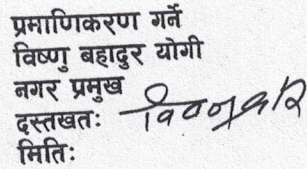 प्रमाणिकरण गर्ने
विष्णु बहादुर योगी
नगर प्रमुख
दस्तखतः
मितिः